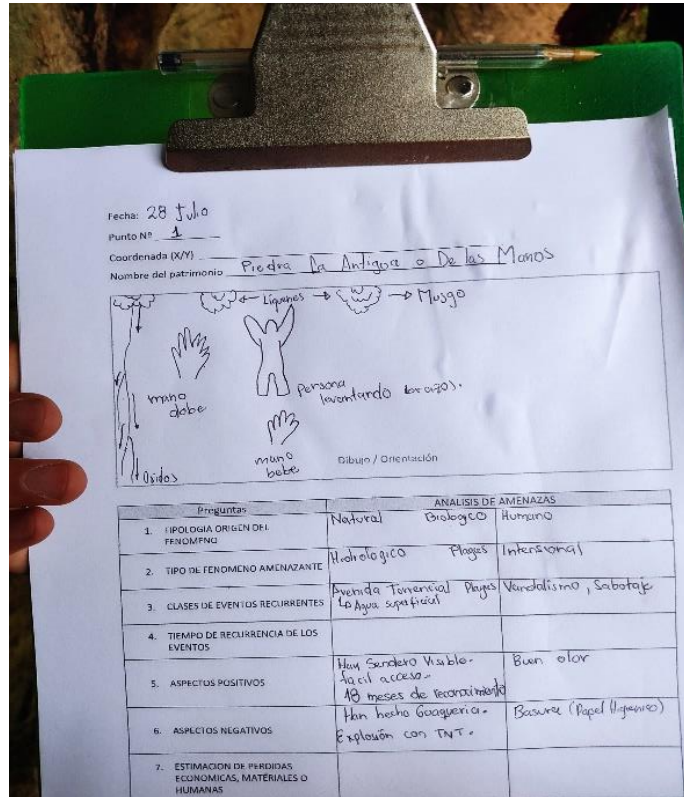 Fecha: 28 Julio
Punto Nº 1
Coordenada (X/Y)
Nombre del patrimonio Piedra La Antigua o De las Manos
Liquenes Musgo
mano
dobe
Persona
levantando brazos.
mano
bebe
Dibujo / Orientación
Oxidos
Preguntas ANALISIS DE AMENAZAS
1. TIPOLOGIA ORIGEN DEL FENOMENO Natural Biologico Humano
2. TIPO DE FENOMENO AMENAZANTE Hidrologico Plagas Intensional
3. CLASES DE EVENTOS RECURRENTES Avenida Torrencial Plagas Vandalismo, Sabotaje
Agua superficial
4. TIEMPO DE RECURRENCIA DE LOS EVENTOS
5. ASPECTOS POSITIVOS Hay Sendero Visible. Buen olor
facil acceso.
18 meses de reconocimiento
6. ASPECTOS NEGATIVOS Han hecho Guaqueria. Basura (Papel Higienico)
Explosión con TNT.
7. ESTIMACION DE PERDIDAS ECONOMICAS, MATERIALES O HUMANAS